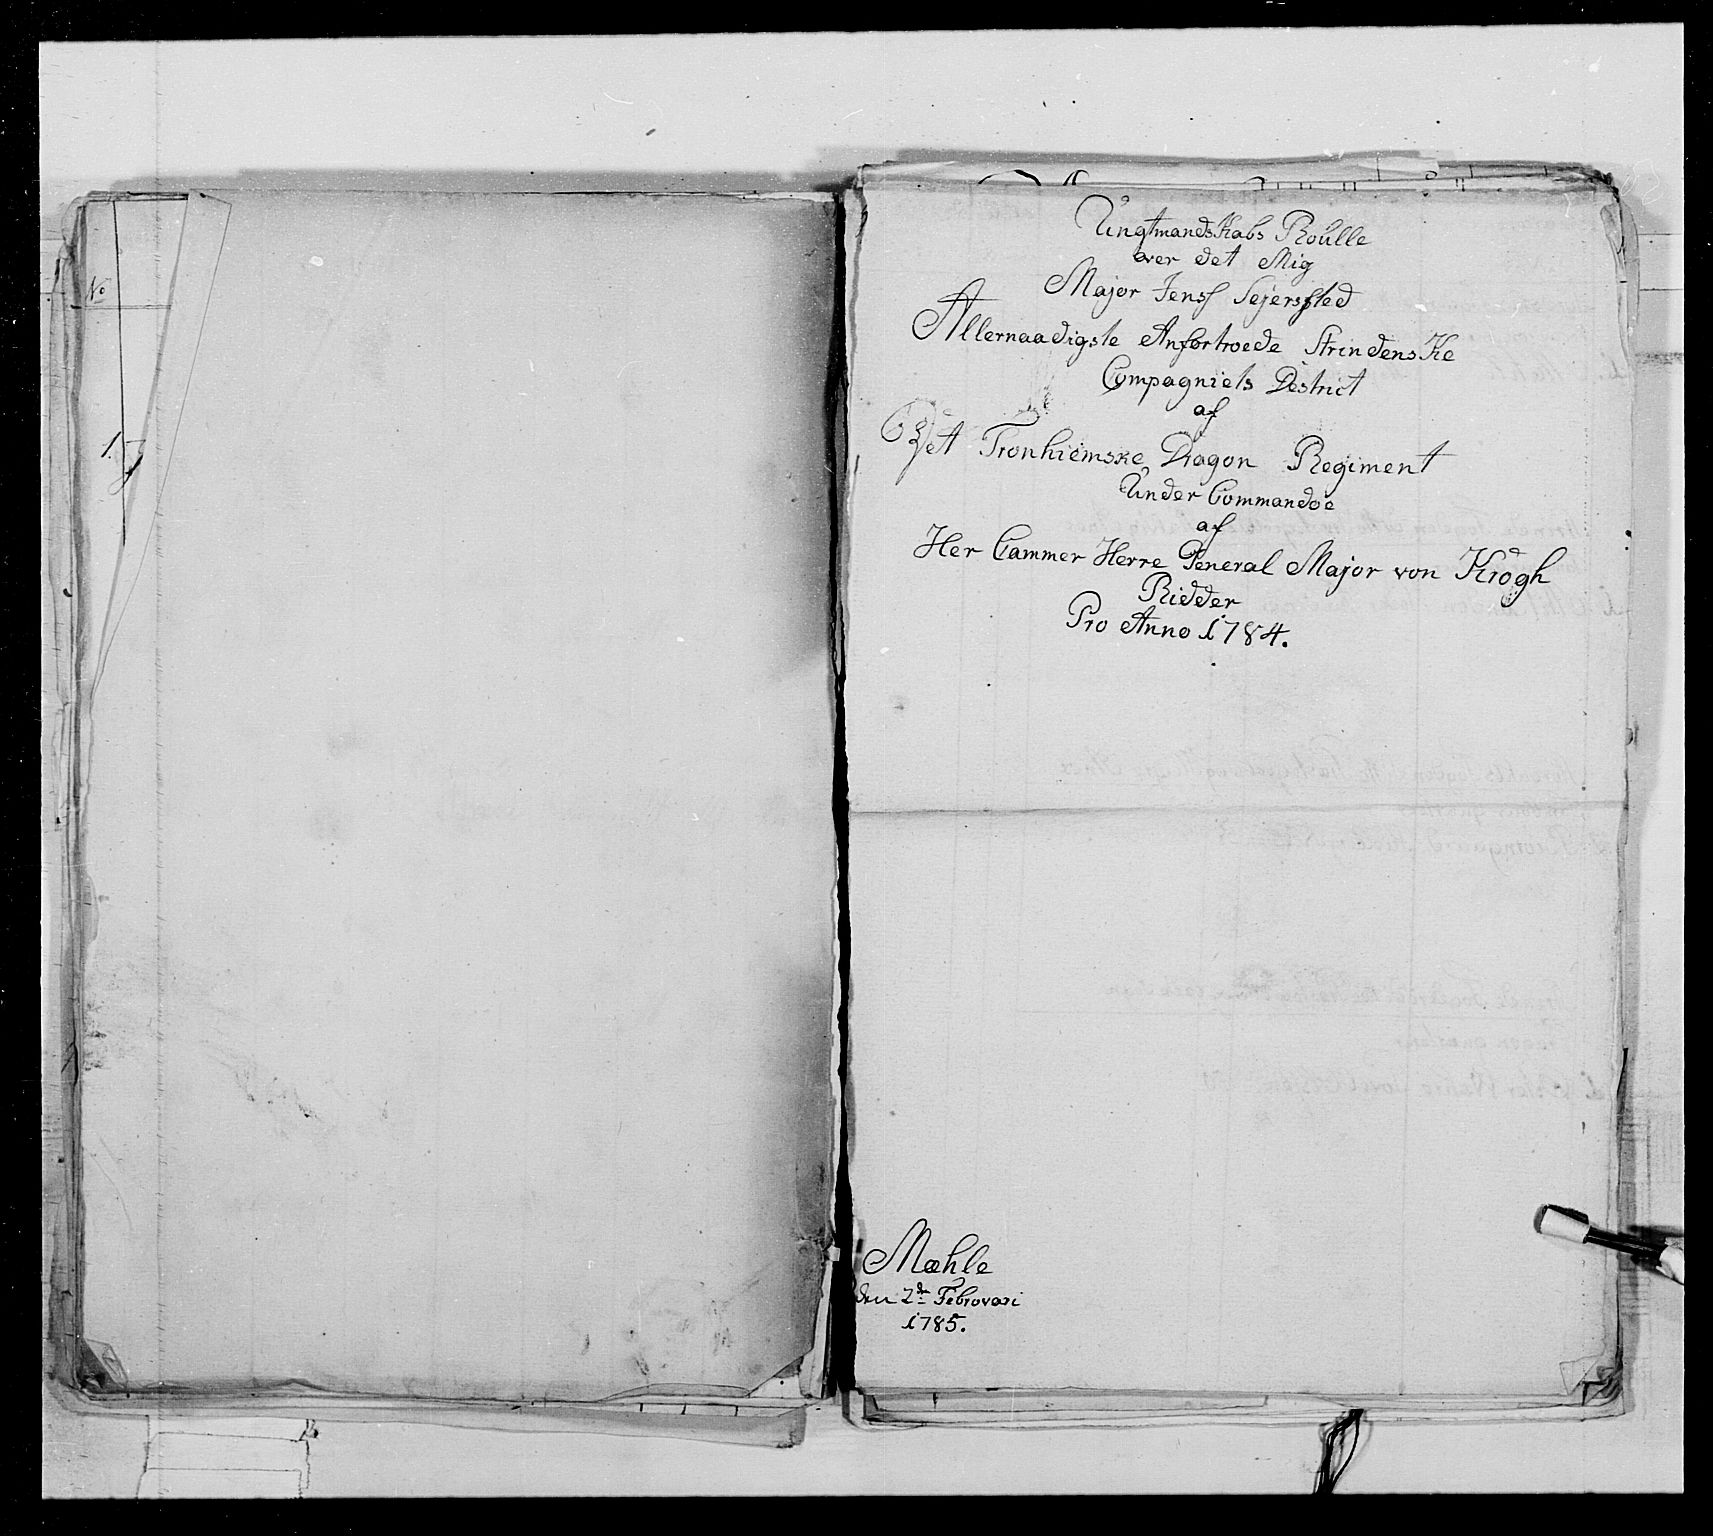 No
1.
Ungtmandskabs Roulle
over det Mig
Major Jenss Sejersssted
Allernaadigste Anfortroede Strindenske
Compagniets Destrict
af
Det Tronhiemske Dragon Regiment
Under Commandoe
af
Her Cammer Herre General Major von Krogh
Ridder
Pro Anno 1784.
Mæhle
den 2den Febrovari
1785.